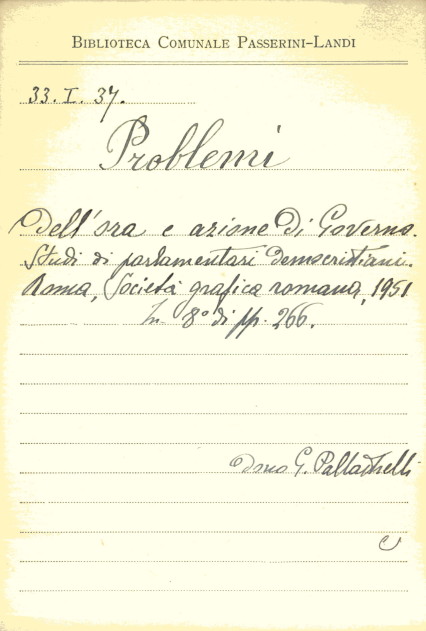 BIBLIOTECA COMUNALE PASSERINI-LANDI
33. I. 37.
Problemi
dell'ora e azione di Governo.
Studi di parlamentari democristiani.
Roma, Società grafica romana, 1951
In 8° di pp. 266.
dono G.